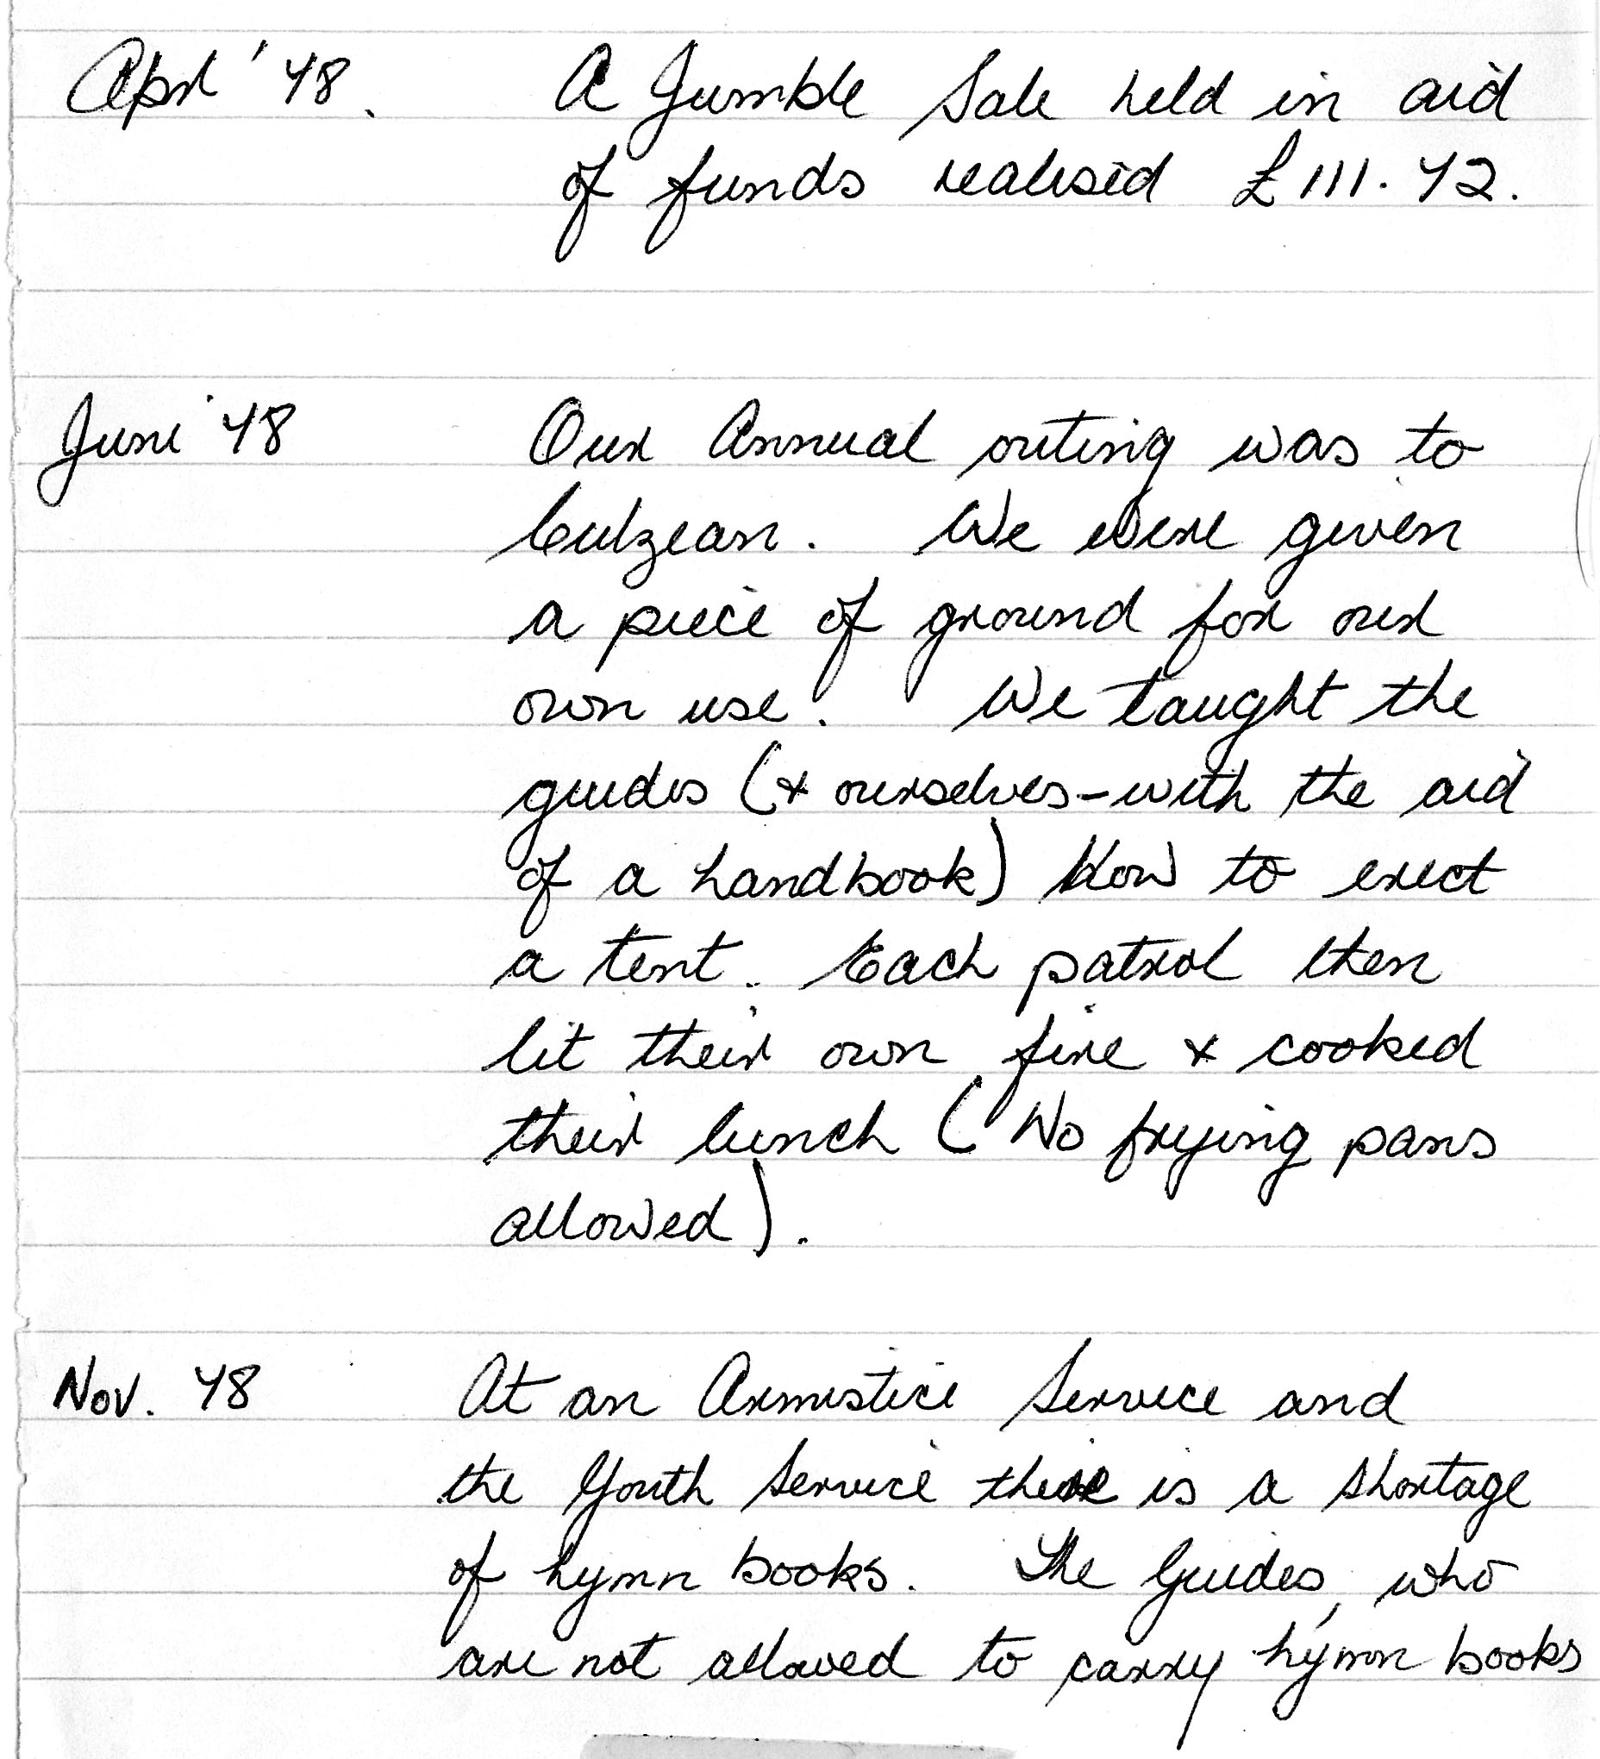 April '48. A Jumble Sale held in aid
of funds realised £111.42.
June '48 Our Annual outing was to
Culzean. We were given
a piece of ground for our
own use. We taught the
guides (& ourselves - with the aid
of a handbook) How to erect
a tent. Each patrol then
lit their own fire & cooked
their lunch (No frying pans
allowed).
Nov. 48 At an Armistice Service and
the Youth Service there is a shortage
of hymn books. The Guides, who
are not allowed to carry hymn books